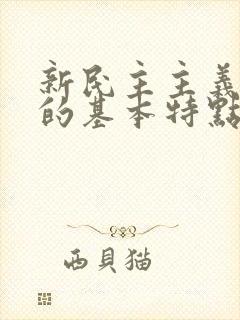 新民主主義
的基本特點
西貝猫